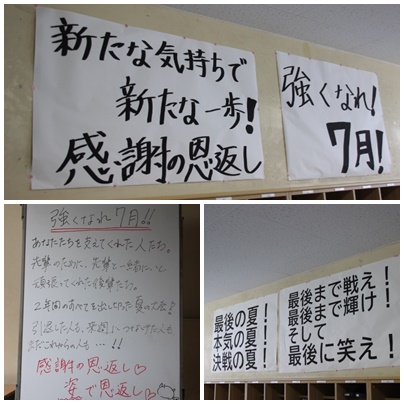 新たな気持ちで
新たな一歩!
感謝の恩返し
強くなれ!
7月!
強くなれ7月!!
あなたたちを支えてくれた人たち。
先輩のために、先輩と一緒に、と
頑張ってくれた後輩たち。
2年間のすべてを出しきった夏の大会♪
引退した人も、
まだこれからの人も…!!
感謝の恩返し♡
姿で恩返し♡
最後の夏!
本気の夏!
決戦の夏!
最後まで戦え!
最後まで輝け!
そして
最後に笑え!